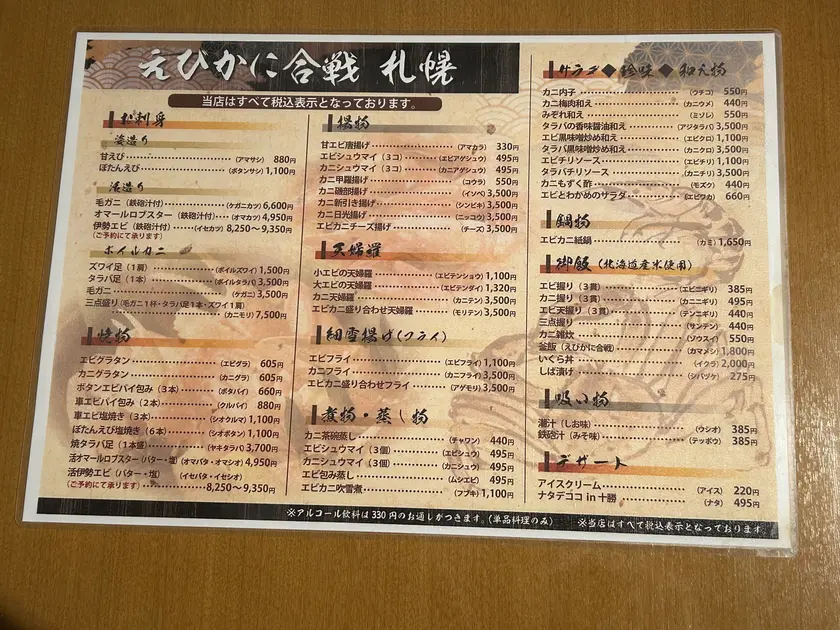 えびかに合戦 札幌
当店はすべて税込表示となっております。
お刺身
姿造り
甘えび (アマサシ) 880円
ぼたんえび (ボタンサシ) 1,100円
活造り
毛ガニ (鉄砲汁付) (ケガニカツ) 6,600円
オマールロブスター (鉄砲汁付) (オマカツ) 4,950円
伊勢エビ (鉄砲汁付) (イセカツ) 8,250～9,350円
(ご予約にて承ります)
ボイルカニ
ズワイ足 (1肩) (ボイルズワイ) 1,500円
タラバ足 (1本) (ボイルタラバ) 3,500円
毛ガニ (ケガニ) 3,500円
三点盛り (毛ガニ1杯・タラバ足1本・ズワイ1肩)
(カニモリ) 7,500円
焼物
エビグラタン (エビグラ) 605円
カニグラタン (カニグラ) 605円
ボタンエビパイ包み (3本) (ボタパイ) 660円
車エビパイ包み (2本) (クルパイ) 880円
車エビ塩焼き (3本) (シオクルマ) 1,100円
ぼたんえび塩焼き (6本) (シオボタン) 1,100円
焼タラバ足 (1本盛) (ヤキタラバ) 3,700円
活オマールロブスター (バター・塩) (オマバタ・オマシオ) 4,950円
活伊勢エビ (バター・塩) (イセバタ・イセシオ)
(ご予約にて承ります) 8,250～9,350円
揚物
甘エビ唐揚げ (アマカラ) 330円
エビシュウマイ (3コ) (エビアゲシュウ) 495円
カニシュウマイ (3コ) (カニアゲシュウ) 495円
カニ甲羅揚げ (コウラ) 550円
カニ磯部揚げ (イソベ) 3,500円
カニ新引き揚げ (シンビキ) 3,500円
カニ日光揚げ (ニッコウ) 3,500円
エビカニチーズ揚げ (チーズ) 3,500円
天婦羅
小エビの天婦羅 (エビテンショウ) 1,100円
大エビの天婦羅 (エビテンダイ) 1,320円
カニ天婦羅 (カニテン) 3,500円
エビカニ盛り合わせ天婦羅 (モリテン) 3,500円
細雪揚げ(フライ)
エビフライ (エビフライ) 1,100円
カニフライ (カニフライ) 3,500円
エビカニ盛り合わせフライ (アゲモリ) 3,500円
煮物・蒸し物
カニ茶碗蒸し (チャワン) 440円
エビシュウマイ (3個) (エビシュウ) 495円
カニシュウマイ (3個) (カニシュウ) 495円
エビ包み蒸し (ムシエビ) 495円
エビカニ吹雪煮 (フブキ) 1,100円
サラダ◆珍味◆和え物
カニ内子 (ウチコ) 550円
カニ梅肉和え (カニウメ) 440円
みぞれ和え (ミゾレ) 550円
タラバの香味醤油和え (アジタラバ) 3,500円
エビ黒味噌炒め和え (エビクロ) 1,100円
タラバ黒味噌炒め和え (カニクロ) 3,500円
エビチリソース (エビチリ) 1,100円
タラバチリソース (カニチリ) 3,500円
カニもずく酢 (モズク) 440円
エビとわかめのサラダ (エビワカ) 660円
鍋物
エビカニ紙鍋 (カミ) 1,650円
御飯 (北海道産米使用)
エビ握り (3貫) (エビニギリ) 385円
カニ握り (3貫) (カニニギリ) 495円
エビ天握り (3貫) (テンニギリ) 440円
三点握り (サンテン) 440円
カニ雑炊 (ゾウスイ) 550円
釜飯 (えびかに合戦) (カマメシ) 1,800円
いくら丼 (イクラ) 2,000円
しば漬け (シバヅケ) 275円
吸い物
潮汁 (しお味) (ウシオ) 385円
鉄砲汁 (みそ味) (テッポウ) 385円
デザート
アイスクリーム (アイス) 220円
ナタデココ in 十勝 (ナタ) 495円
※アルコール飲料は330円のお通しがつきます。(単品料理のみ) ※当店はすべて税込表示となっております。